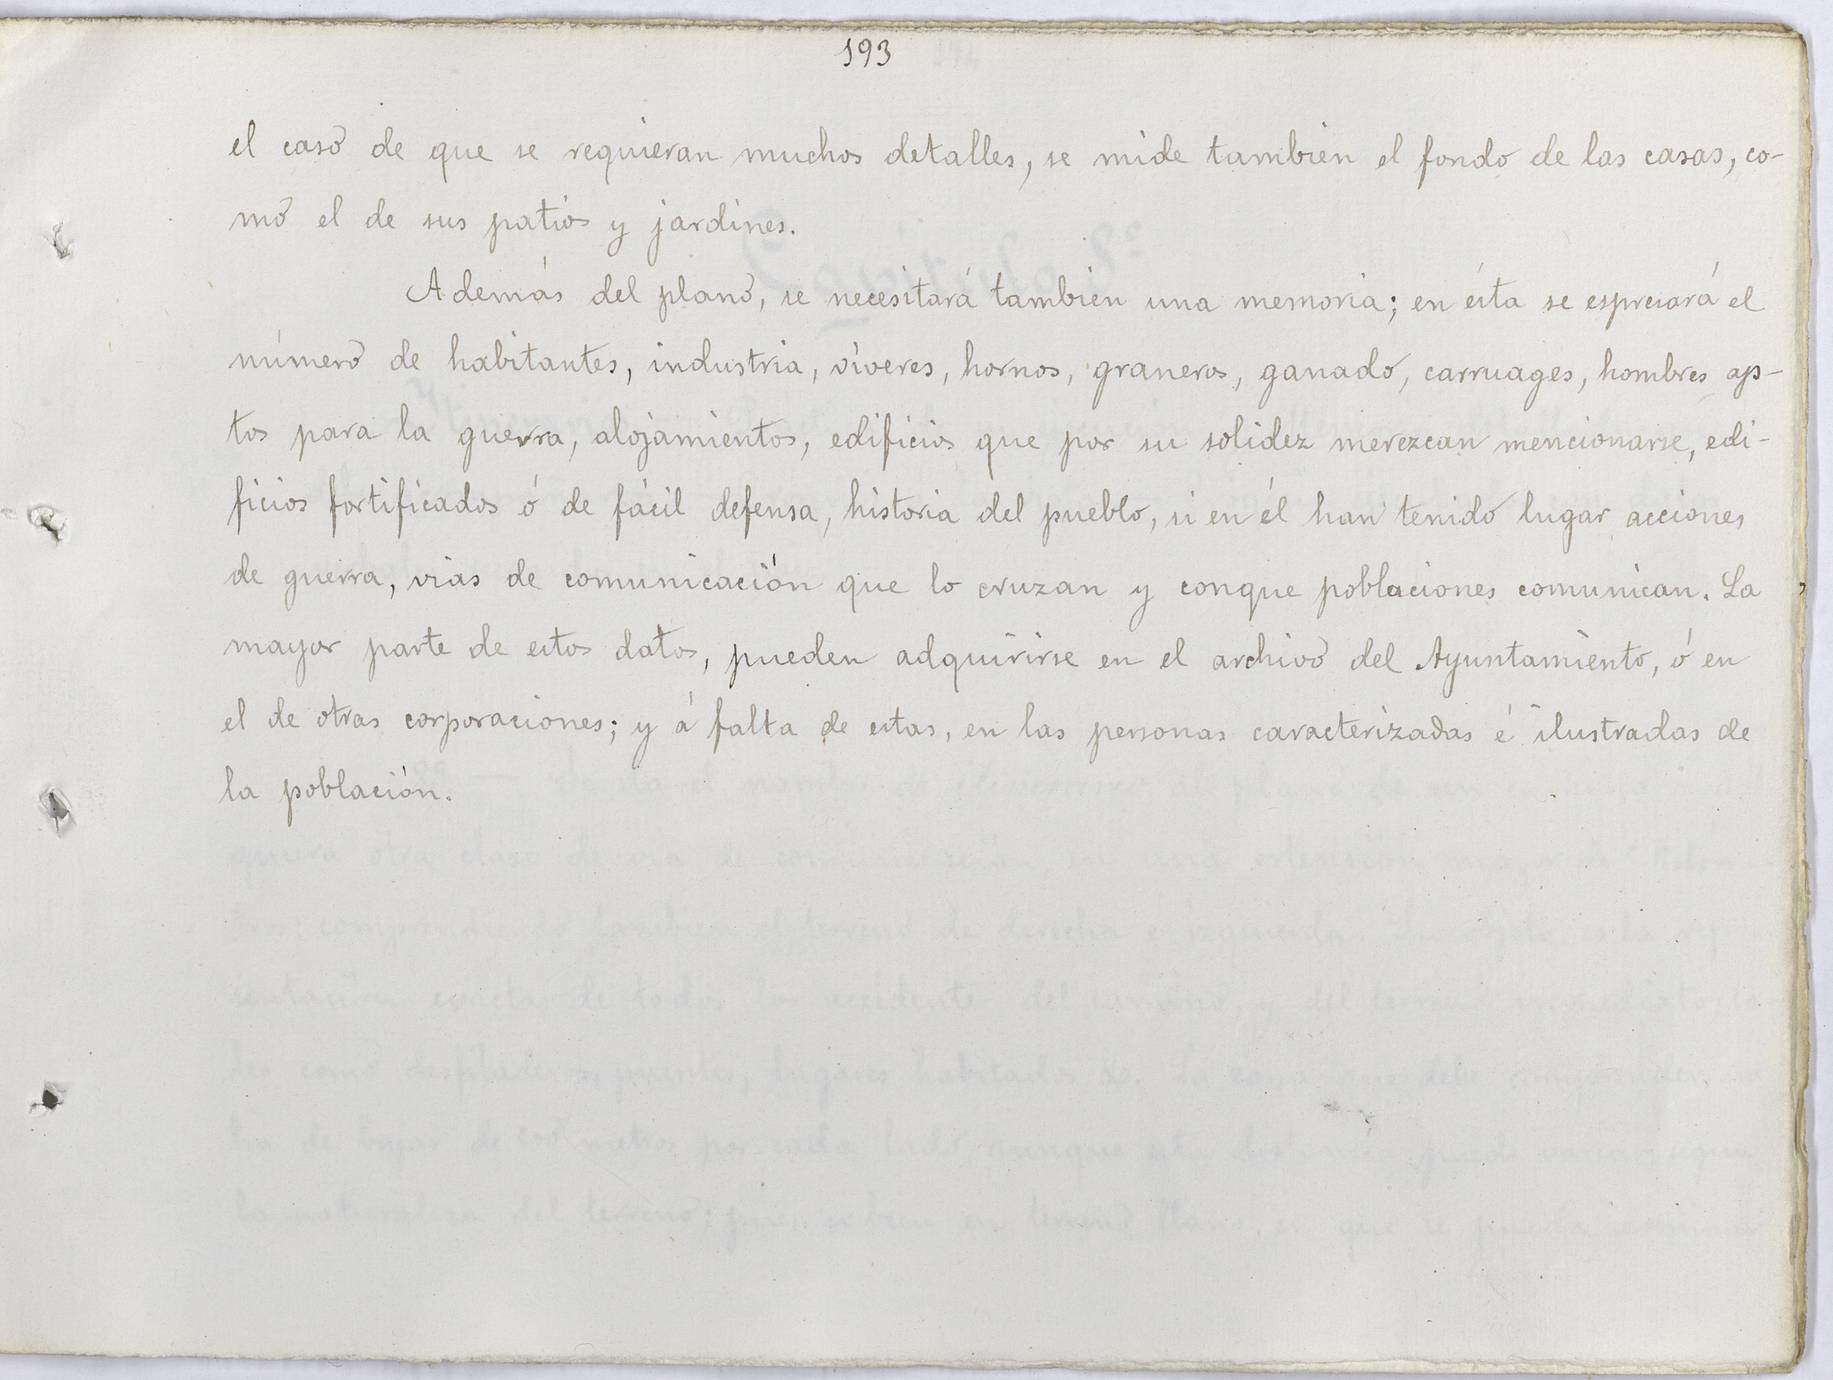 193
el caso de que se requieran muchos detalles, se mide tambien el fondo de las casas, co-
mo el de sus patios y jardines.
Además del plano, se necesitará tambien una memoria; en ésta se espresará el
número de habitantes, industria, víveres, hornos, graneros, ganado, carruages, hombres ap-
tos para la guerra, alojamientos, edificios que por su solidez merezcan mencionarse, edi-
ficios fortificados ó de fácil defensa, historia del pueblo, si en él han tenido lugar acciones
de guerra, vias de comunicación que lo cruzan y conque poblaciones comunican. La
mayor parte de estos datos, pueden adquirirse en el archivo del Ayuntamiento, ó en
el de otras corporaciones; y á falta de estas, en las personas caracterizadas é ilustradas de
la población.